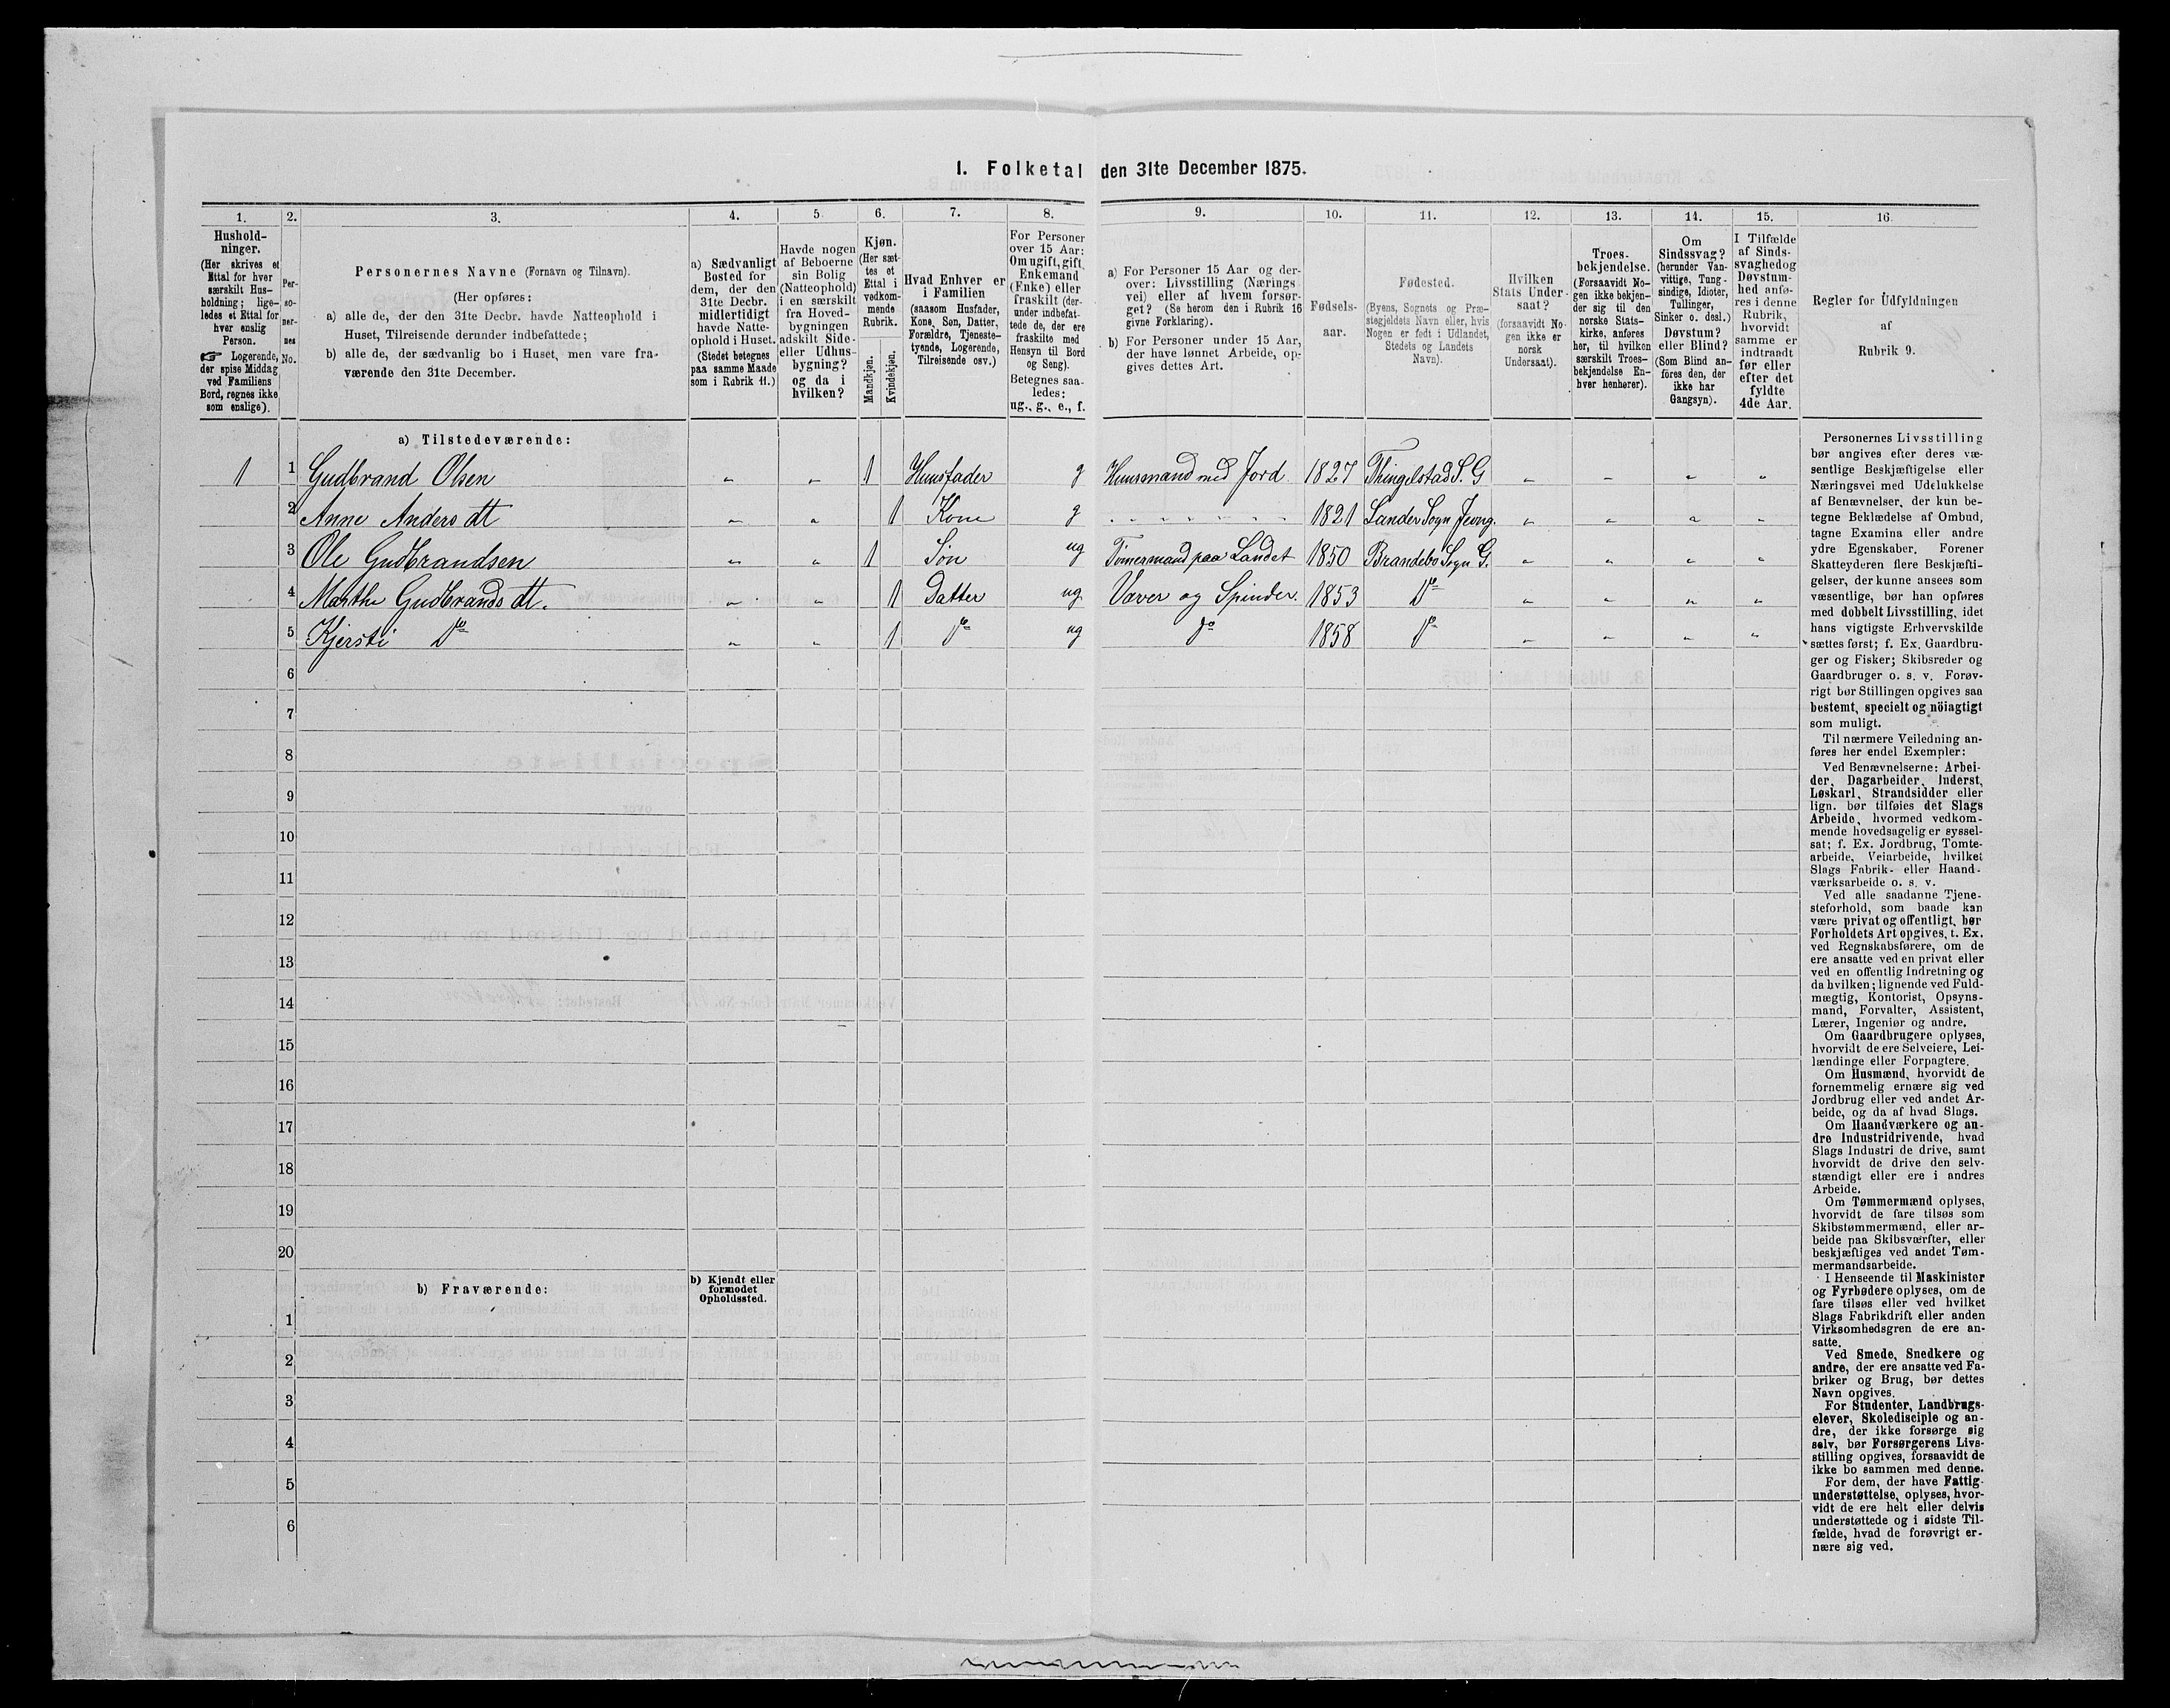 1. Folketal den 31te December 1875.
1. 2. 3. 4. 5. 6. 7. 8. 9. 10. 11. 12. 13. 14. 15. 16.
Hushold-
ninger.
(Her skrives et
Ettal for hver
særskilt Hus-
holdning; lige-
ledes et Ettal for
hver enslig
Person.
☞ Logerende,
der spise Middag
ved Familiens
Bord, regnes ikke
som enslige).
Per-
so-
ner-
nes
No.
Personernes Navne (Fornavn og Tilnavn).
(Her opføres:
a) alle de, der den 31te Decbr. havde Natteophold i
Huset, Tilreisende derunder indbefattede;
b) alle de, der sædvanlig bo i Huset, men vare fra-
værende den 31te December.
a) Sædvanligt
Bosted for
dem, der den
31te Decbr.
midlertidigt
havde Natte-
ophold i Huset.
(Stedet betegnes
paa samme Maade
som i Rubrik 11.)
Havde nogen
af Beboerne
sin Bolig
(Natteophold)
i en særskilt
fra Hoved-
bygningen
adskilt Side-
eller Udhus-
bygning?
og da i
hvilken?
Kjøn.
(Her sæt-
tes et
Ettal i
vedkom-
mende
Rubrik.
Mandkjøn.
Kvindekjøn.
Hvad Enhver er
i Familien
(saasom Husfader,
Kone, Søn, Datter,
Forældre, Tjeneste-
tyende, Logerende,
Tilreisende osv.)
For Personer
over 15 Aar:
Om ugift, gift,
Enkemand
(Enke) eller
fraskilt (der-
under indbefat-
tede de, der ere
fraskilte med
Hensyn til Bord
og Seng).
Betegnes saa-
ledes:
ug., g., e., f.
a) For Personer 15 Aar og der-
over: Livsstilling (Nærings-
vei) eller af hvem forsør-
get? (Se herom den i Rubrik 16
givne Forklaring).
b) For Personer under 15 Aar,
der have lønnet Arbeide, op-
gives dettes Art.
Fødsels-
aar.
Fødested.
(Byens, Sognets og Præ-
stegjeldets Navn eller, hvis
Nogen er født i Udlandet,
Stedets og Landets
Navn).
Hvilken
Stats Under-
saat?
(forsaavidt No-
gen ikke er
norsk
Undersaat).
Troes-
bekjendelse.
(Forsaavidt No-
gen ikke bekjen-
der sig til den
norske Stats-
kirke, anføres
her, til hvilken
særskilt Troes-
bekjendelse En-
hver henhører).
Om
Sindssvag?
(herunder Van-
vittige, Tung-
sindige, Idioter,
Tullinger,
Sinker o. desl.)
Døvstum?
eller Blind?
(Som Blind an-
føres den, der
ikke har
Gangsyn).
I Tilfælde
af Sinds-
svaghed og
Døvstum-
hed anfø-
res i denne
Rubrik,
hvorvidt
samme er
indtraadt
før eller
efter det
fyldte
4de Aar.
Regler for Udfyldningen
af
Rubrik 9.
a) Tilstedeværende:
1 1 Gudbrand Olsen " " 1 Huusfader g Huusmand med Jord 1827 Thingelstad S. G " " " "
2 Anne Anders dt " " 1 Kone g " " " " " " 1821 Lander Sogn Jevng. " " " "
3 Ole Gudbrandsen " " 1 Søn ug Tømermand paa Landet 1850 Brandebo Sogn G. " " " "
4 Marthe Gudbrands dt. " " 1 Datter ug Væver og Spinder. 1853 Do " " " "
5 Kjersti Do " " 1 Do ug Do 1858 Do " " " "
6
7
8
9
10
11
12
13
14
15
16
17
18
19
20
b) Fraværende:
b) Kjendt eller
formodet
Opholdssted.
1
2
3
4
5
6
Personernes Livsstilling
bør angives efter deres væ-
sentlige Beskjæftigelse eller
Næringsvei med Udelukkelse
af Benævnelser, der kun be-
tegne Beklædelse af Ombud,
tagne Examina eller andre
ydre Egenskaber. Forener
Skatteyderen flere Beskjæfti-
gelser, der kunne ansees som
væsentlige, bør han opføres
med dobbelt Livsstilling, idet
hans vigtigste Erhvervskilde
sættes først; f. Ex. Gaardbru-
ger og Fisker; Skibsreder og
Gaardbruger o. s. v. Forøv-
rigt bør Stillingen opgives saa
bestemt, specielt og nöiagtigt
som muligt.
Til nærmere Veiledning an-
føres her endel Exempler:
Ved Benævnelserne: Arbei-
der, Dagarbeider, Inderst,
Løskarl, Strandsidder eller
lign. bør tilføies det Slags
Arbeide, hvormed vedkom-
mende hovedsagelig er syssel-
sat; f. Ex. Jordbrug, Tomte-
arbeide, Veiarbeide, hvilket
Slags Fabrik- eller Haand-
værksarbeide o. s. v.
Ved alle saadanne Tjene-
steforhold, som baade kan
være privat og offentligt, bør
Forholdets Art opgives, t. Ex.
ved Regnskabsførere, om de
ere ansatte ved en privat eller
ved en offentlig Indretning og
da hvilken; lignende ved Fuld-
mægtig, Kontorist, Opsyns-
mand, Forvalter, Assistent,
Lærer, Ingeniør og andre.
Om Gaardbrugere oplyses,
hvorvidt de ere Selveiere, Lei-
lændinge eller Forpagtere.
Om Husmænd, hvorvidt de
fornemmelig ernære sig ved
Jordbrug eller ved andet Ar-
beide, og da af hvad Slags.
Om Haandværkere og an-
dre Industridrivende, hvad
Slags Industri de drive, samt
hvorvidt de drive den selv-
stændigt eller ere i andres
Arbeide.
Om Tømmermænd oplyses,
hvorvidt de fare tilsøs som
Skibstømmermænd, eller ar-
beide paa Skibsværfter, eller
beskjæftiges ved andet Tøm-
mermandsarbeide.
I Henseende til Maskinister
og Fyrbødere oplyses, om de
fare tilsøs eller ved hvilket
Slags Fabrikdrift eller anden
Virksomhedsgren de ere an-
satte.
Ved Smede, Snedkere og
andre, der ere ansatte ved Fa-
briker og Brug, bør dettes
Navn opgives.
For Studenter, Landbrugs-
elever, Skoledisciple og an-
dre, der ikke forsørge sig
selv, bør Forsørgerens Livs-
stilling opgives, forsaavidt de
ikke bo sammen med denne.
For dem, der have Fattig-
understøttelse, oplyses, hvor-
vidt de ere helt eller delvis
understøttede og i sidste Til-
fælde, hvad de forøvrigt er-
nære sig ved.